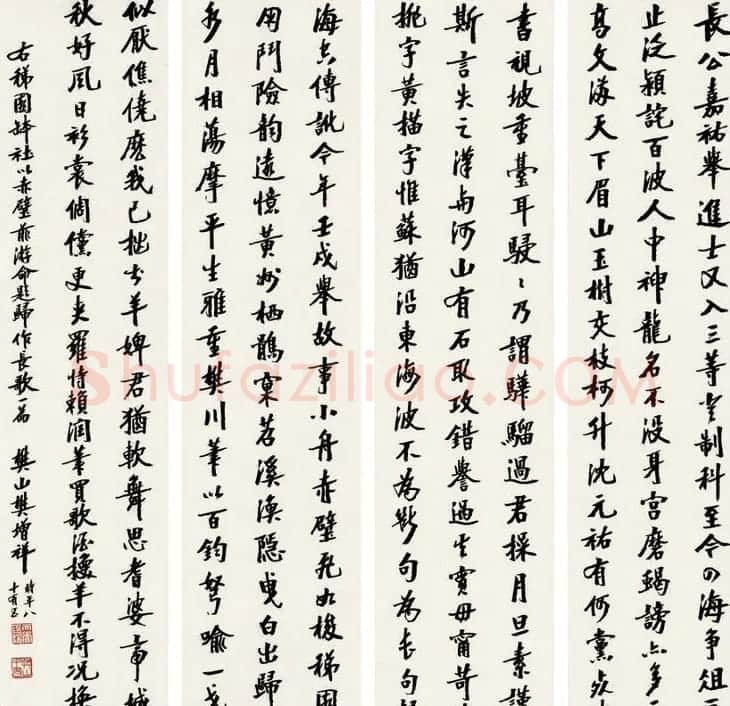 長公嘉祐舉進士又入三等制科至今四海爭俎
止泛穎詫百波人中神龍名不沒身宮磨蝎謗亦多
高文海天下眉山玉樹交枝柯升沈元祐有何黨
書視坡重臺耳駸〻乃謂驊騮過君操月旦素謹
斯言失之漢與河山有石取攻錯譽過其實毋甯苛
挑字黃描字惟蘇猶沿東海波不為斷句為長句
海上傳訛今年壬戌舉故事小舟赤壁飛如梭稊園
用鬥險韵遠憶黃州栖鶻窠苕溪漁隱曳白出歸
水月相蕩摩平生雅重樊川筆以百鈞弩喻一
似厭僬僥麼我已拙出羊婢君猶軟舞思耆婆
秋好風日衫裳倜儻更羅特賴润筆買歌酒擾羊不得況換
右稊園鉢社以赤壁前游命題歸作長歌一篇 樊山樊增祥
時年八
十有五
Shufaziliao.COM